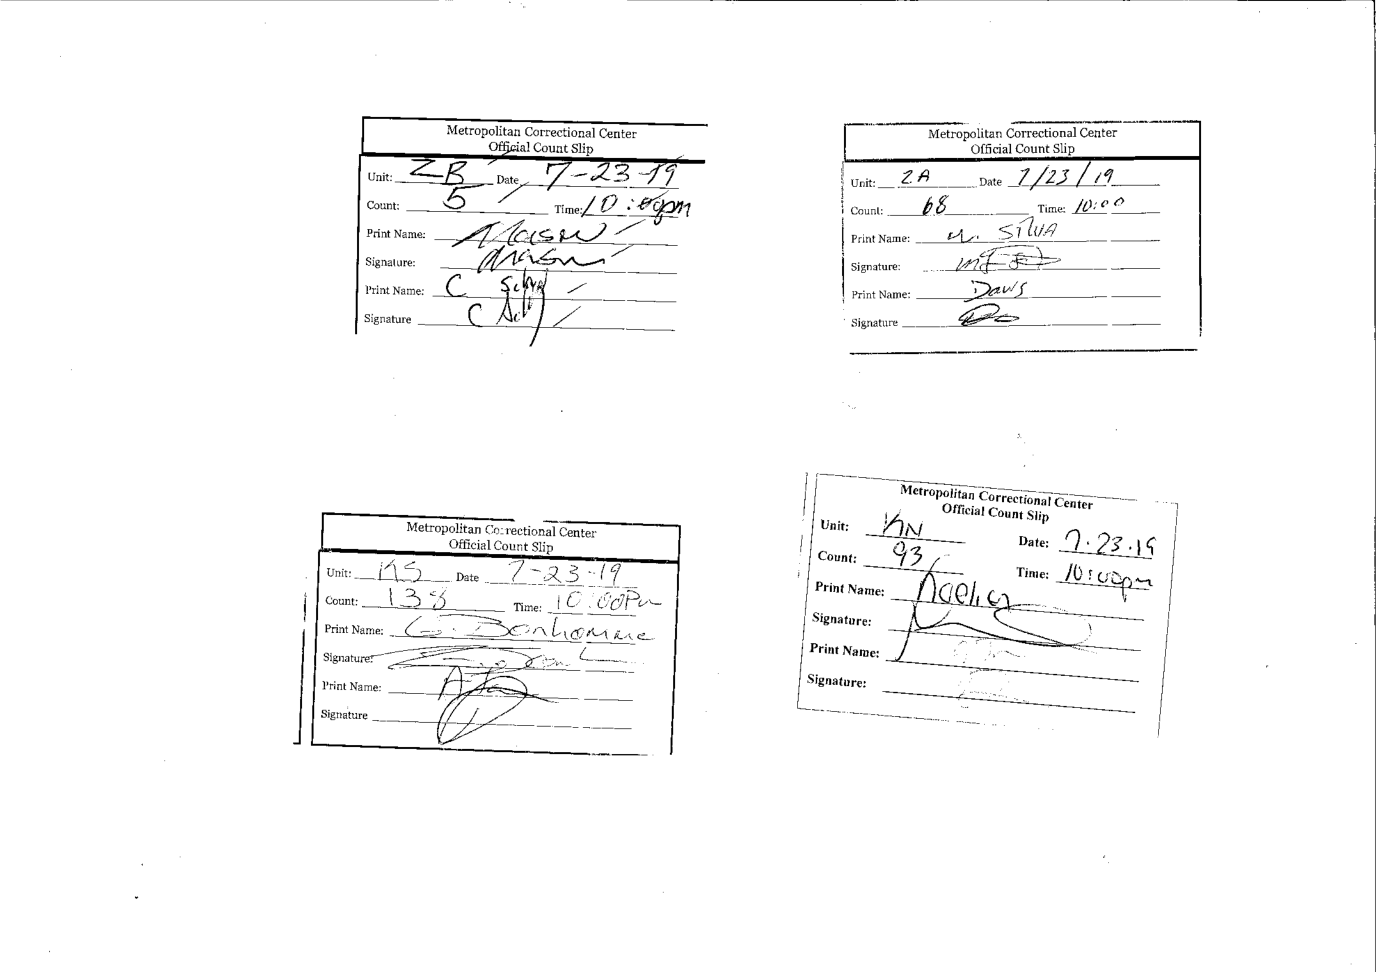 Metropolitan Correctional Center
Official Count Slip
Unit: ZB Date 7-23-19
Count: 5 Time: 10:00pm
Print Name: Mason
Signature: Mason
Print Name: C
Signature C
Metropolitan Correctional Center
Official Count Slip
Unit: 2A Date 7/23/19
Count: 68 Time: 10:00
Print Name: M. SILVA
Signature:
Print Name: Davis
Signature
Metropolitan Correctional Center
Official Count Slip
Unit: KS Date 7-23-19
Count: 138 Time: 10:00Pm
Print Name: G. Bonhomme
Signature:
Print Name:
Signature
Metropolitan Correctional Center
Official Count Slip
Unit: KN Date: 7.23.19
Count: 93 Time: 10:00pm
Print Name: Noelia
Signature:
Print Name:
Signature: